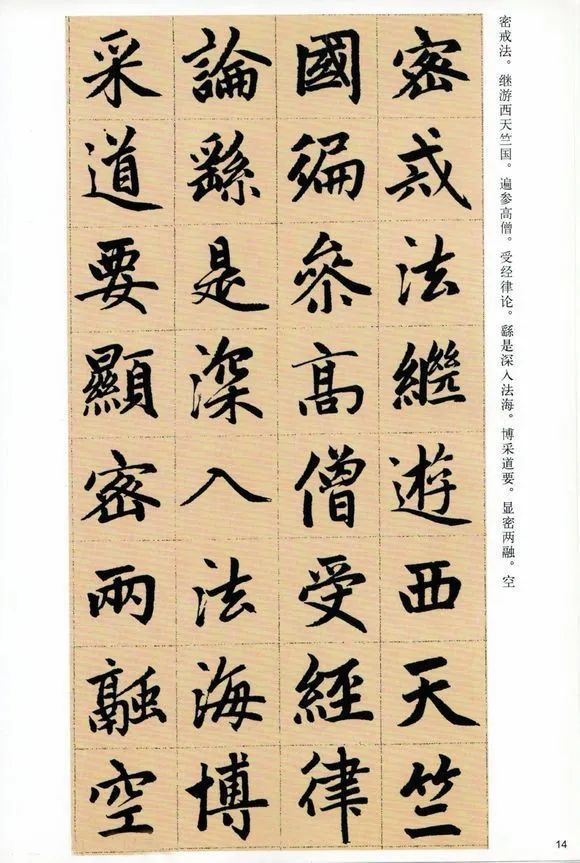 密戒法。继游西天竺国。遍参高僧。受经律论。繇是深入法海。博采道要。显密两融。空
密戒法繼遊西天竺
國徧參高僧受經律
論繇是深入法海博
采道要顯密兩融空
14